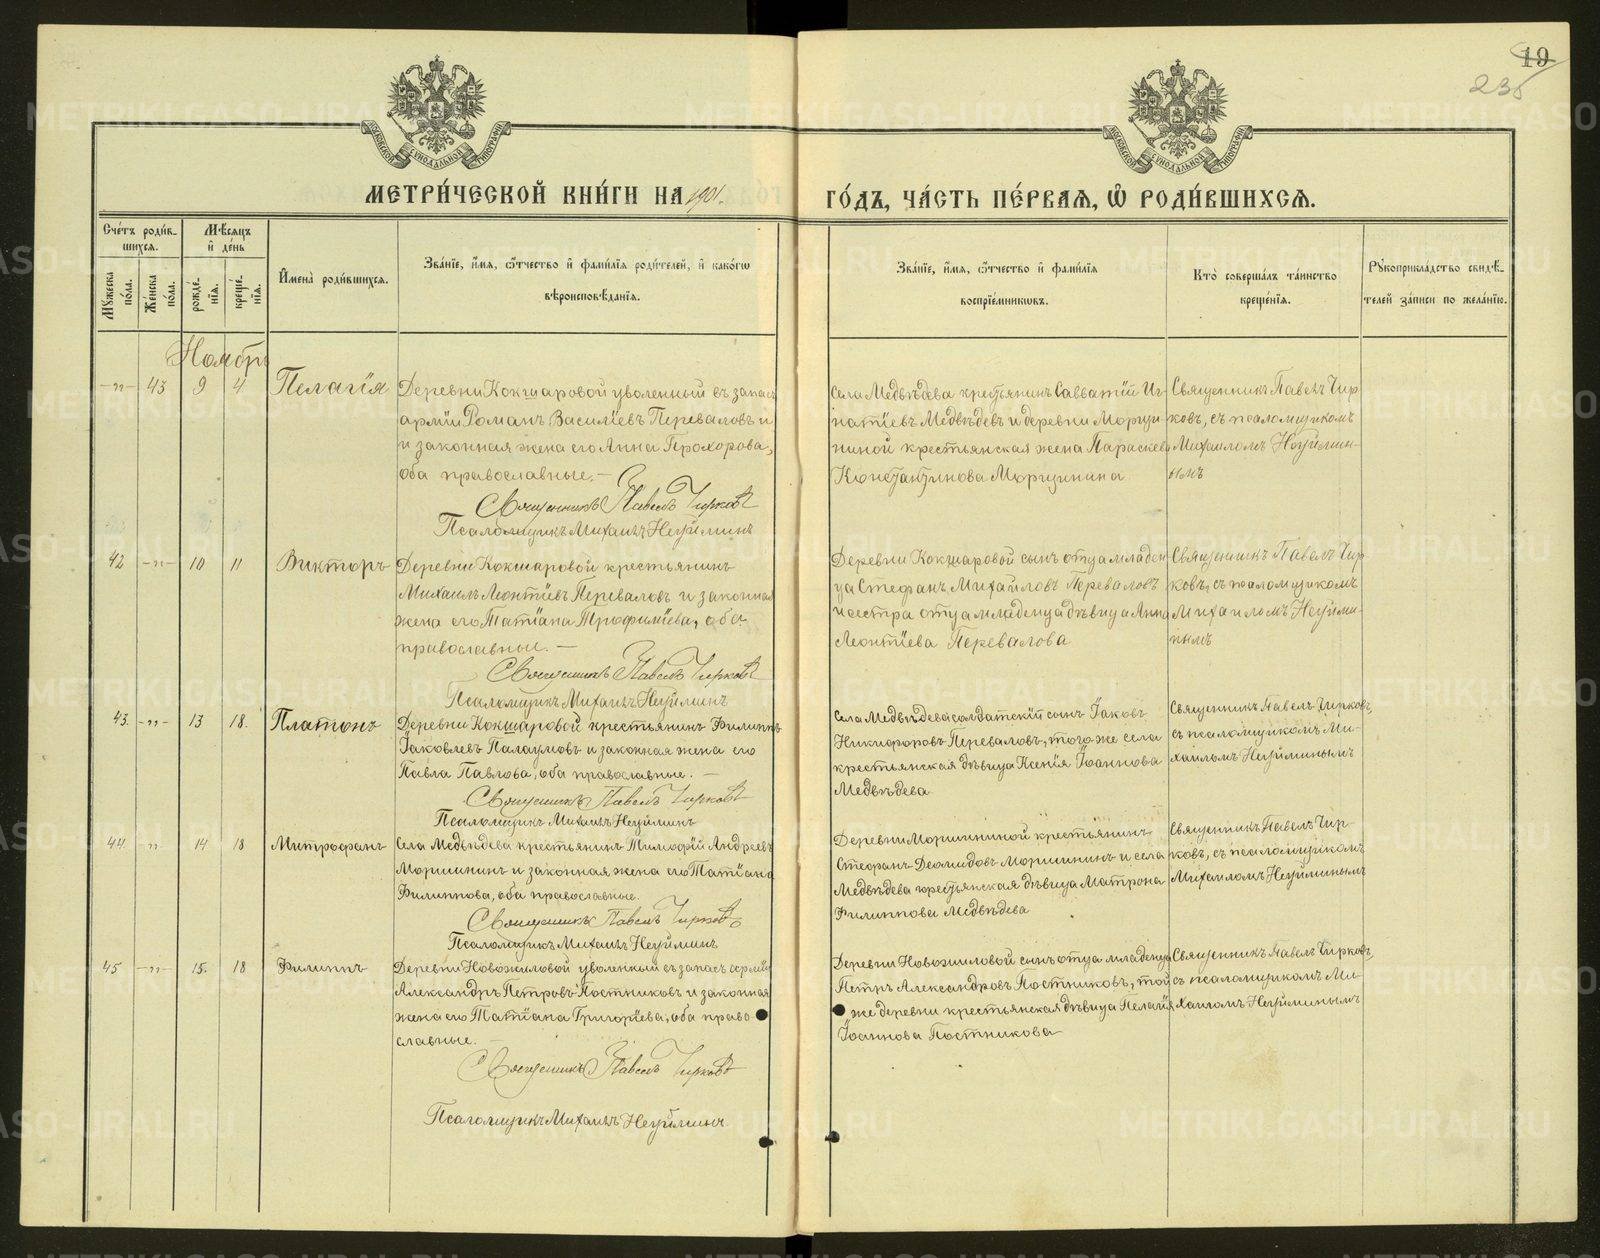 19
235
МОСКОВСКОЙ СУНОДАЛЬНОЙ ТИПОГРАФІИ
МОСКОВСКОЙ СУНОДАЛЬНОЙ ТИПОГРАФІИ
МЕТРИ́ЧЕСКОЙ КНИ́ГИ НА 1901.
ГО́ДЪ, ЧА́СТЬ ПЕ́РВАѦ, Ѡ҆ РОДИ́ВШИХСѦ.
Сче́тъ роди́в-
шихсѧ.
Мѣ́сѧцъ
и҆ де́нь
Мꙋ́жеска
по́ла.
Же́нска
по́ла.
рожде́-
нїѧ.
креще́-
нїѧ.
И҆мена̀ роди́вшихсѧ.
Зва́нїе, и҆́мѧ, ѻ҆́тчество и҆ фами́лїѧ роди́телей, и҆ како́гѡ
вѣроисповѣ́данїѧ.
Зва́нїе, и҆́мѧ, ѻ҆́тчество и҆ фами́лїѧ
воспрїе́мникѡвъ.
Кто̀ соверша́лъ та́инство
креще́нїѧ.
Рꙋкоприкла́дство свидѣ́-
телей за́писи по жела́нїю.
Ноябрь
-"- 43 9 4 Пелагія
Деревни Кокшаровой уволенный въ запасъ
арміи Романъ Василіевъ Переваловъ и
и законная жена его Анна Прохорова,
оба православные. —
Священникъ Павелъ Чирковъ
Псаломщикъ Михаилъ Неуйминъ
Села Медвѣдева крестьянинъ Савватій Иг-
натіевъ Медвѣдевъ и деревни Морши-
ниной крестьянская жена Параскева
Константинова Моршинина
Священникъ Павелъ Чир-
ковъ, съ псаломщикомъ
Михаиломъ Неуймин-
ымъ
42 -"- 10 11 Викторъ
Деревни Кокшаровой крестьянинъ
Михаилъ Леонтіевъ Перевалов и законная
жена его Татіана Трофиміева, оба
православные. —
Священникъ Павелъ Чирковъ
Псаломщикъ Михаилъ Неуйминъ
Деревни Кокшаровой сынъ отца младен
ца Стефанъ Михаиловъ Перевалов
и сестра отца младенца дѣвица Анна
Леонтіева Перевалова
Священникъ Павелъ Чир-
ковъ, съ псаломщикомъ
Михаиломъ Неуйми-
нымъ
43. -"- 13 18. Платонъ
Деревни Кокшаровой крестьянинъ Филиппъ
Іаковлевъ Палаумовъ и законная жена его
Павла Павлова, оба православные. —
Священникъ Павелъ Чирковъ
Псаломщикъ Михаилъ Неуйминъ
Села Медвѣдева солдатскій сынъ Іаковъ
Никифоровъ Перевалов, того же села
крестьянская дѣвица Ксенія Іоаннова
Медвѣдева
Священникъ Павелъ Чирковъ
съ псаломщикомъ Ми-
хаиломъ Неуйминымъ
44. " 14 18 Митрофанъ
Села Медвѣдева крестьянинъ Тимофій Андреевъ
Моршининъ и законная жена его Татіана
Филиппова, оба православные.
Священникъ Павелъ Чирковъ
Псаломщикъ Михаилъ Неуйминъ
Деревни Моршининой крестьянинъ
Стефанъ Демидовъ Моршининъ и села
Медвѣдева крестьянская дѣвица Матрона
Филиппова Медвѣдева
Священникъ Павелъ Чир-
ковъ, съ псаломщикомъ
Михаиломъ Неуйминымъ
45 -"- 15. 18 Филиппъ
Деревни Новожиловой уволенный въ запасъ арміи
Александръ Петровъ Постниковъ и законная
жена его Татіана Григоріева, оба право-
славные. —
Священникъ Павелъ Чирковъ
Псаломщикъ Михаилъ Неуйминъ
Деревни Новожиловой сынъ отца младенца
Петръ Александровъ Постниковъ, той
же деревни крестьянская дѣвица Пелагія
Іоаннова Постникова
Священникъ Павелъ Чирковъ,
съ псаломщикомъ Ми-
хаиломъ Неуйминымъ
METRIKI.GASO-URAL.RU